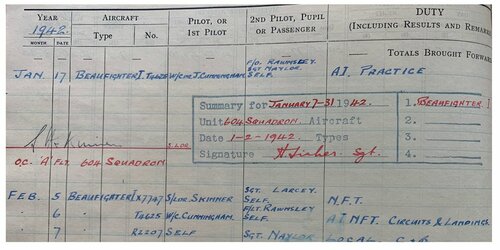 YEAR AIRCRAFT PILOT, OR 2ND PILOT, PUPIL DUTY
1942. 1ST PILOT OR PASSENGER (INCLUDING RESULTS AND REMARKS
MONTH DATE Type No.
— TOTALS BROUGHT FORWARD
F/O. RAWNSLEY.
SGT NAYLOR.
JAN. 17 BEAUFIGHTER I. T4625 W/CDR J. CUNNINGHAM. SELF. A.I. PRACTICE
Summary for JANUARY 7-31 1942. 1. BEAUFIGHTER I
Unit 604 SQUADRON. Aircraft 2.
Date 1-2-1942. Types 3.
Signature H. Fisher Sgt. 4.
S/LDR.
O.C. 'A' FLT. 604 SQUADRON
SGT. LARCEY.
FEB. 5 BEAUFIGHTER I X7747 S/LDR. SKINNER SELF. N.F.T.
F/LT. RAWNSLEY
6 T4625 W/C. CUNNINGHAM. SELF. A.I. NFT. CIRCUITS & LANDINGS.
7 R2207 SELF SGT. NAYLOR LOCAL